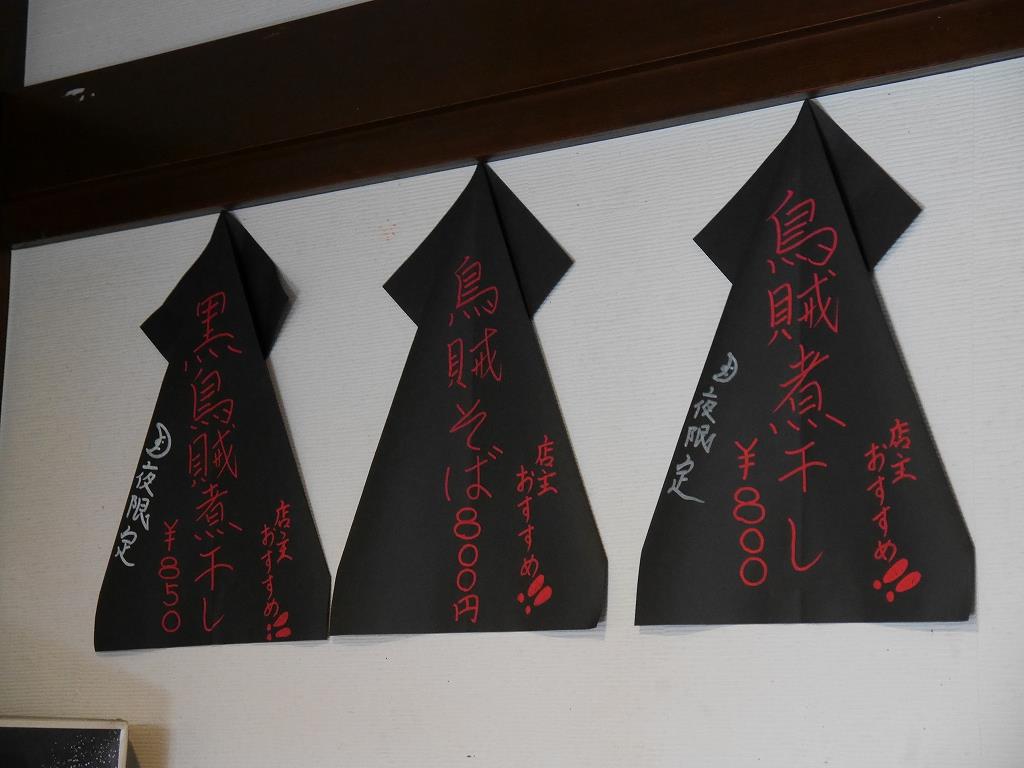 店主
おすすめ!!
烏賊煮干し
¥800
夜限定
店主
おすすめ!!
烏賊そば800円
店主
おすすめ!!
黒烏賊煮干し
¥850
夜限定